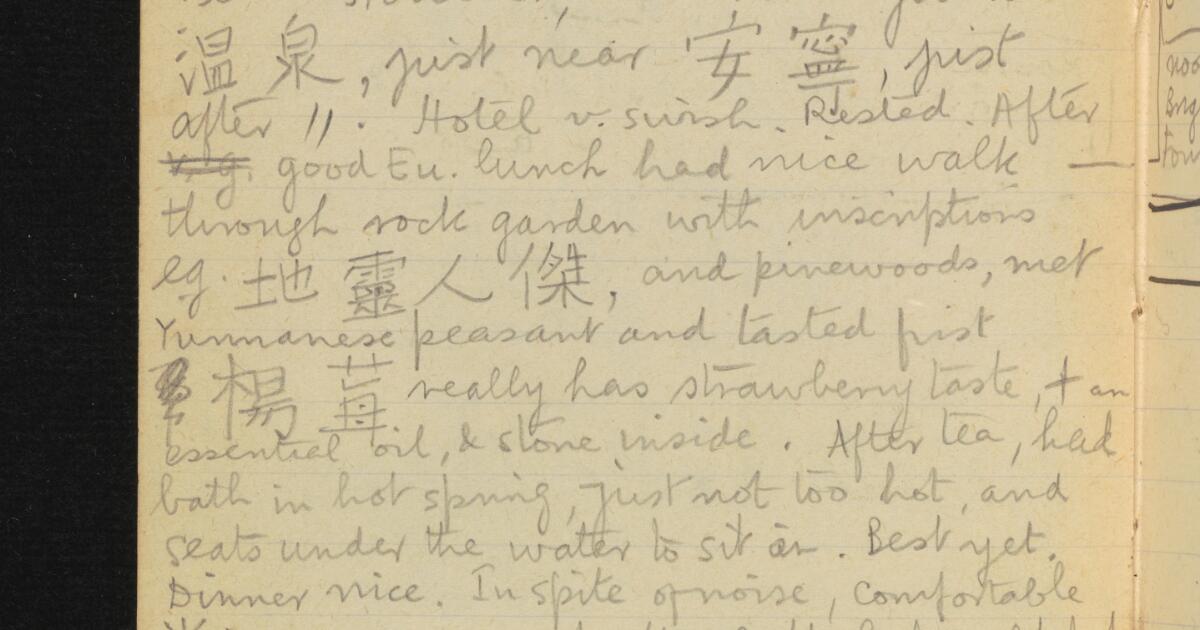 温泉, just near 安寧, just
after 11. Hotel v. swish. Rested. After
v. g. good Eu. lunch had nice walk —
through rock garden with inscriptions
eg. 地靈人傑, and pinewoods, met
Yunnanese peasant and tasted first
楊莓 really has strawberry taste, + an
essential oil, & stone inside. After tea, had
bath in hot spring, just not too hot, and
seats under the water to sit on. Best yet.
Dinner nice. In spite of noise, comfortable